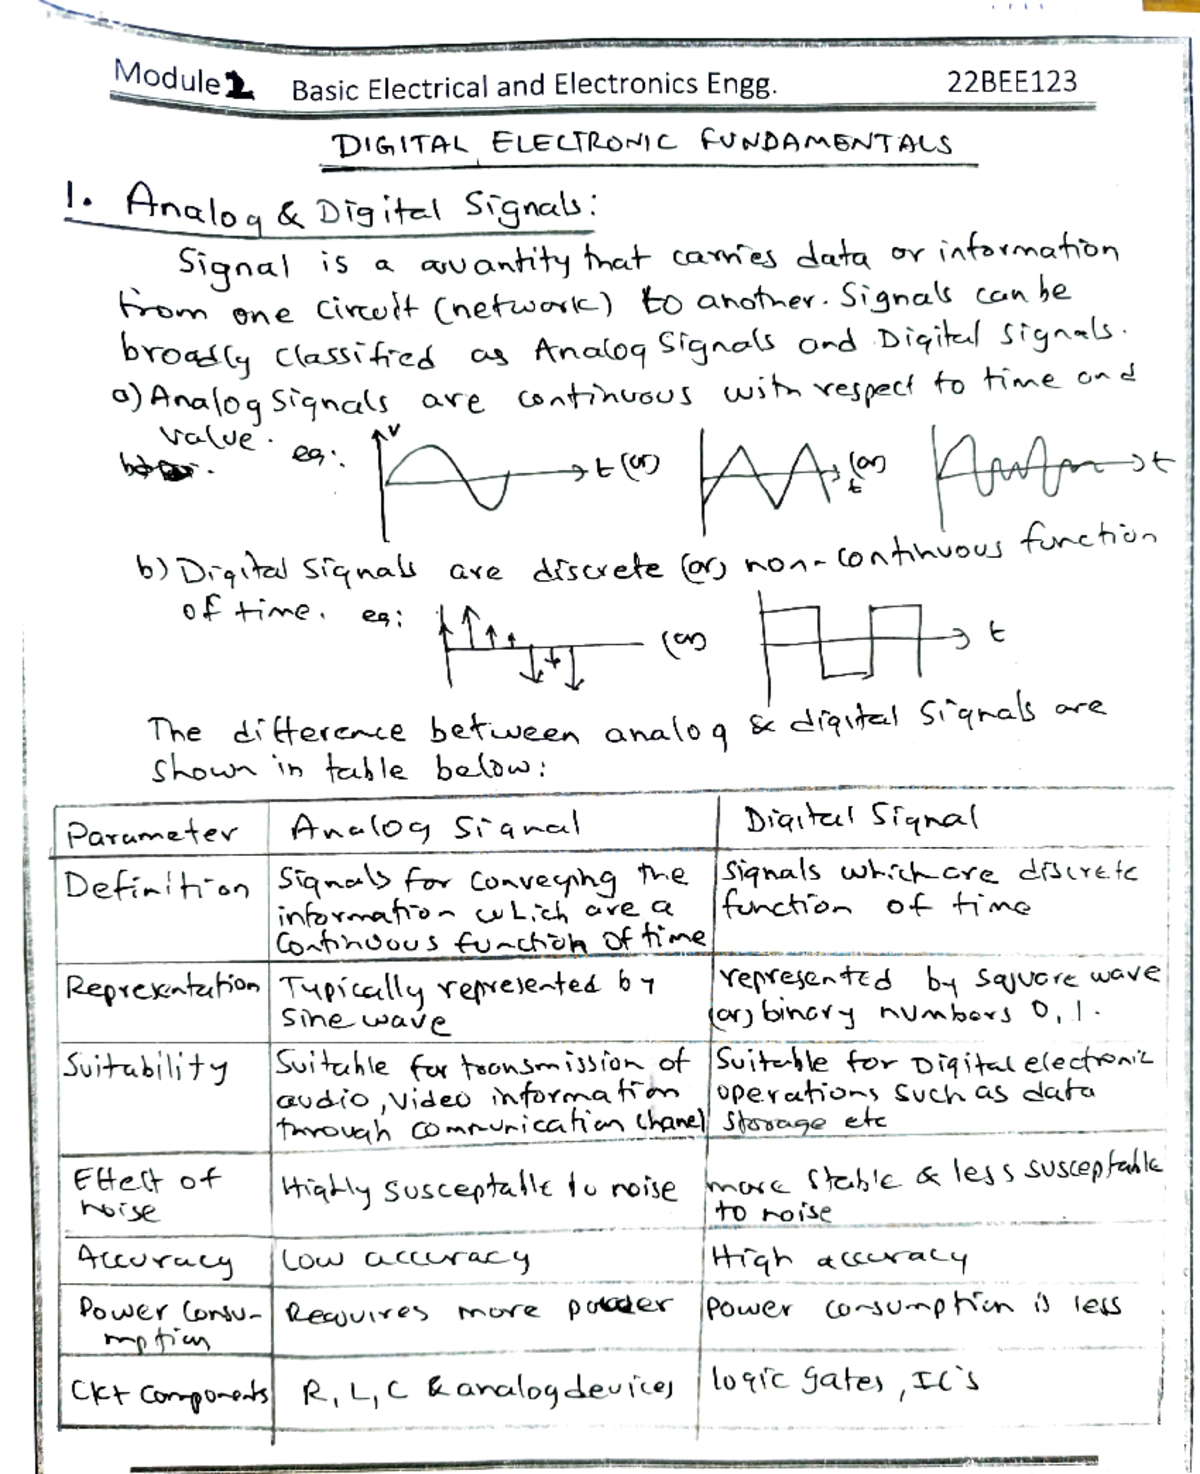 Module 2 Basic Electrical and Electronics Engg. 22BEE123
DIGITAL ELECTRONIC FUNDAMENTALS
1. Analog & Digital Signals:
Signal is a quantity that carries data or information
from one circuit (network) to another. Signals can be
broadly classified as Analog Signals and Digital signals.
a) Analog Signals are continuous with respect to time and
value. eg: v t (or) t (or) t
b) Digital Signals are discrete (or) non-continuous function
of time. eg: (or) t
The difference between analog & digital Signals are
shown in table below:
Parameter Analog Signal Digital Signal
Definition Signals for conveying the Signals which are discrete
information which are a function of time
Continuous function of time
Representation Typically represented by represented by square wave
Sine wave (or) binary numbers 0, 1.
Suitability Suitable for transmission of Suitable for Digital electronic
audio, video information operations such as data
through communication chanel storage etc
Effect of Highly susceptable to noise more stable & less susceptable
noise to noise
Accuracy Low accuracy High accuracy
Power Consu- Requires more power Power consumption is less
mption
Ckt components R, L, C & analog devices logic gates, IC's